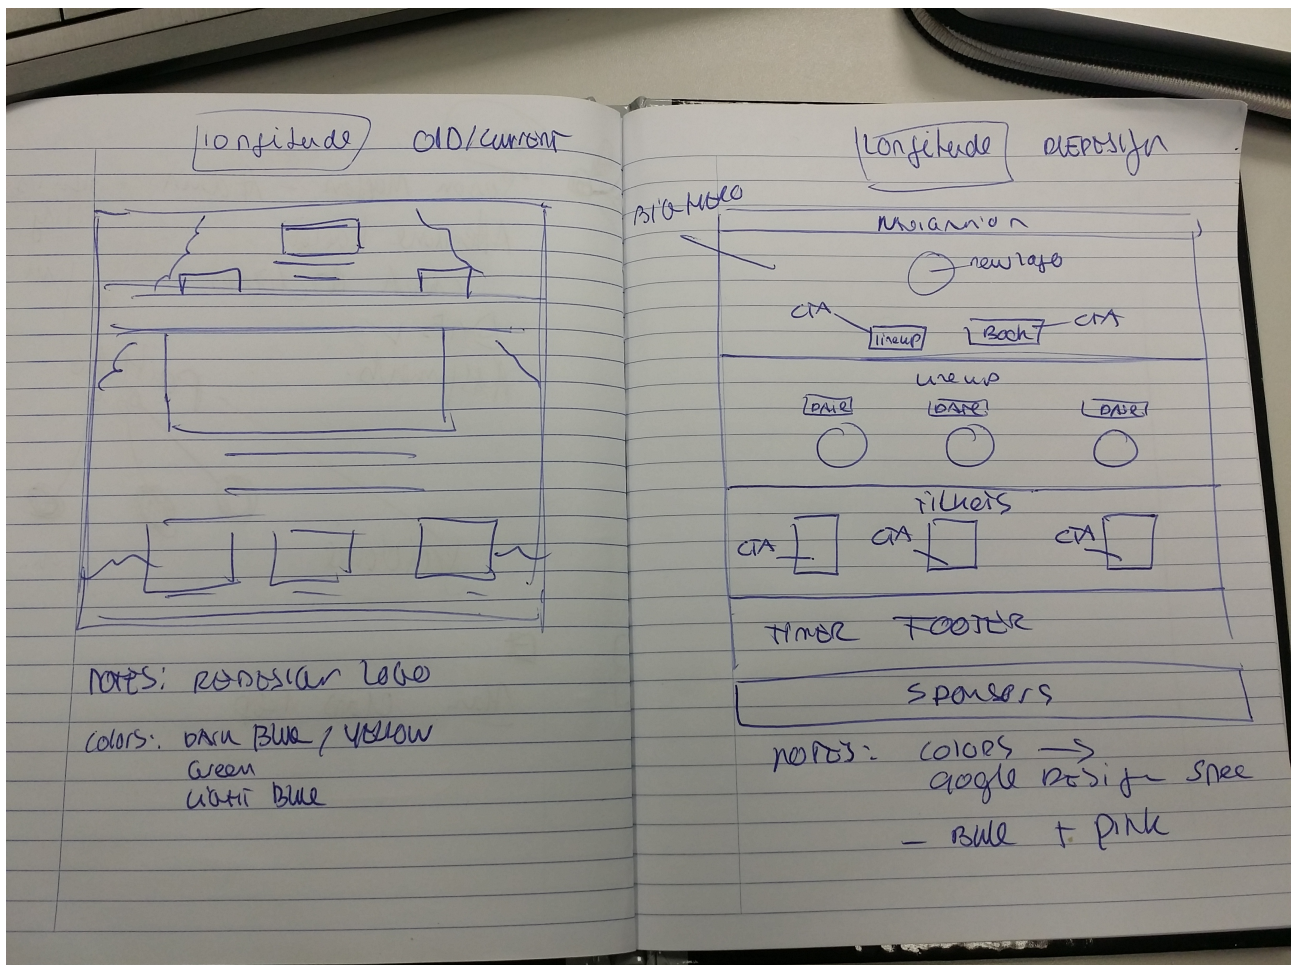 Longitude OLD/Current
Notes: REDESIGN LOGO
Colors: DARK Blue / YELLOW
Green
LIGHT Blue
Longitude REDESIgn
BIG HERO
new logo
CTA
CTA
lineup
Book
Lineup
DATE DATE DATE
Tickets
CTA CTA CTA
TIMER FOOTER
Sponsers
NOTES: COLORS →
Google DESign Spec
- Blue + PINK